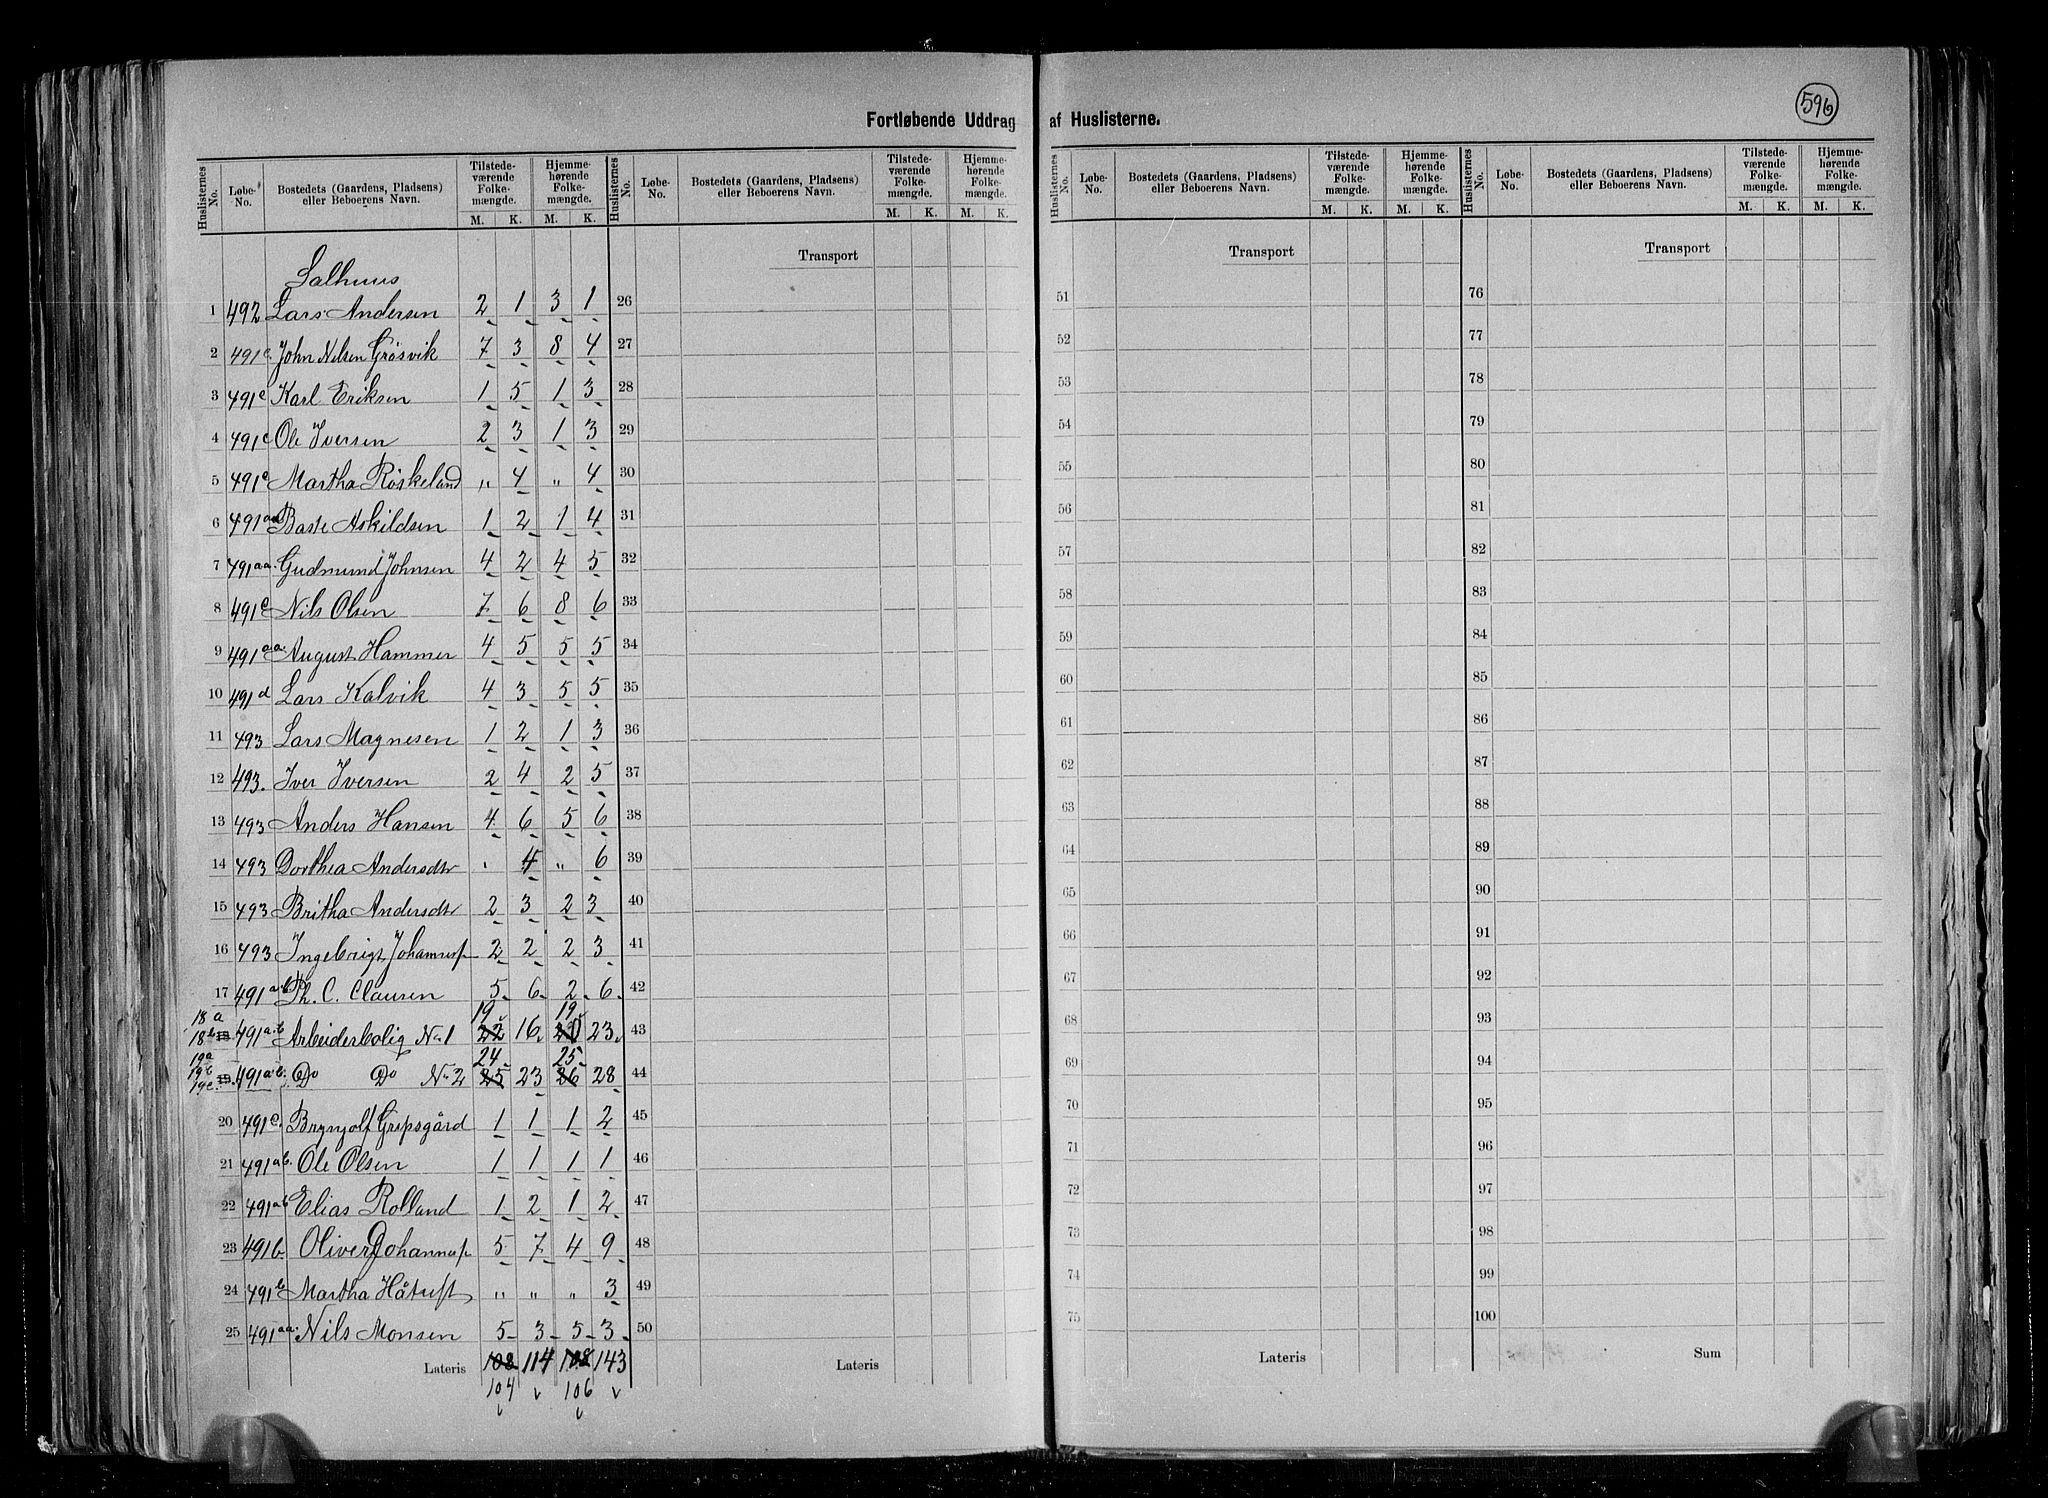 596
Fortløbende Uddrag af Huslisterne.
Huslisternes No. Løbe-No. Bostedets (Gaardens, Pladsens) eller Beboerens Navn. Tilstedeværende Folkemængde. M. K. Hjemmehørende Folkemængde. M. K.
Huslisternes No. Løbe-No. Bostedets (Gaardens, Pladsens) eller Beboerens Navn. Tilstedeværende Folkemængde. M. K. Hjemmehørende Folkemængde. M. K.
Huslisternes No. Løbe-No. Bostedets (Gaardens, Pladsens) eller Beboerens Navn. Tilstedeværende Folkemængde. M. K. Hjemmehørende Folkemængde. M. K.
Huslisternes No. Løbe-No. Bostedets (Gaardens, Pladsens) eller Beboerens Navn. Tilstedeværende Folkemængde. M. K. Hjemmehørende Folkemængde. M. K.
Salhuus Transport Transport Transport
1 492 Lars Andersen 2 1 3 1 26 51 76
2 491c. John Nilsen Grøsvik 7 3 8 4 27 52 77
3 491c Karl Eriksen 1 5 1 3 28 53 78
4 491c Ole Iversen 2 3 1 3 29 54 79
5 491c Martha Röskeland " 4 " 4 30 55 80
6 491aa Baste Askildsen 1 2 1 4 31 56 81
7 491aa. Gudmund Johnsen 4 2 4 5 32 57 82
8 491c Nils Olsen 7 6 8 6 33 58 83
9 491aa. August Hammer 4 5 5 5 34 59 84
10 491d Lars Kalvik 4 3 5 5 35 60 85
11 493 Lars Magnesen 1 2 1 3 36 61 86
12 493. Iver Iversen 2 4 2 5 37 62 87
13 493 Anders Hansen 4 6 5 6 38 63 88
14 493 Dorthea Andersdtr " 4 " 6 39 64 89
15 493 Britha Andersdtr 2 3 2 3 40 65 90
16 493 Ingebrigt Johannesn 2 2 2 3 41 66 91
17 491ab Th. C. Clausen 5 6 2 6 42 67 92
18a 19 19
18b 18 491ab Arbeiderbolig No 1 22 16 20 23 43 68 93
19a 24 25
19b 19c 19 491ab. Do Do No 2 25 23 26 28 44 69 94
20 491c. Brynjolf Gripsgård 1 1 1 2 45 70 95
21 491ab. Ole Olsen 1 1 1 1 46 71 96
22 491ab Elias Rolland 1 2 1 2 47 72 97
23 491b. Oliver Johannesn 5 7 4 9 48 73 98
24 491b Martha Håtuft " " " 3 49 74 99
25 491aa. Nils Monsen 5 3 5 3 50 75 100
Lateris 108 114 108 143 Lateris Lateris Sum
104 106